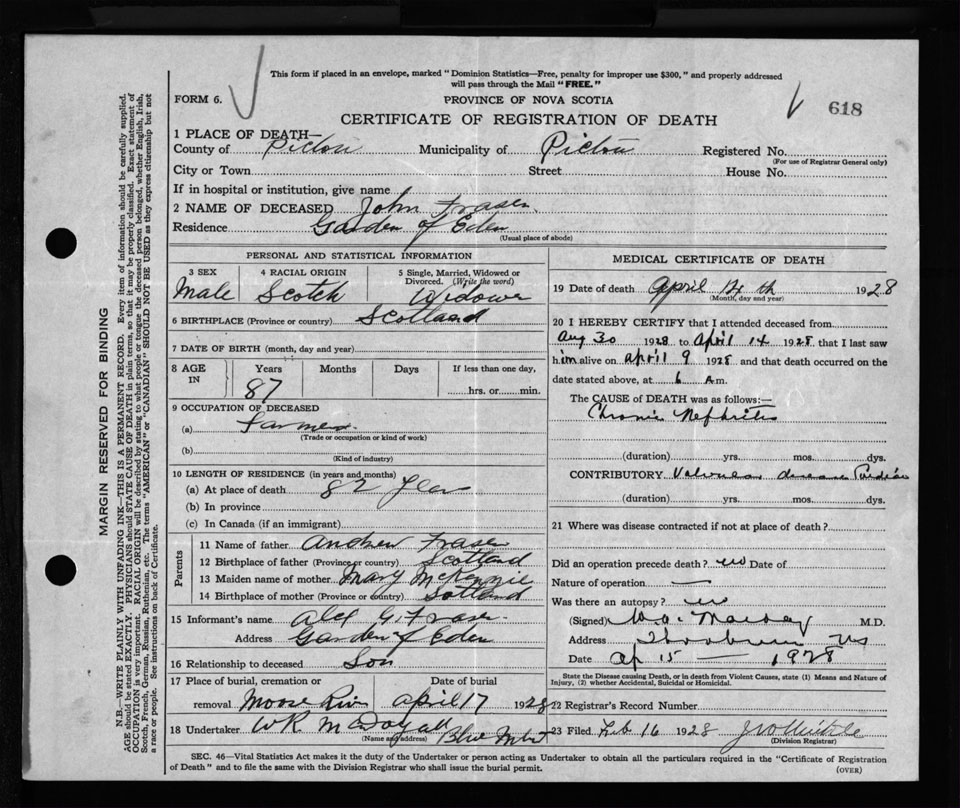 This form if placed in an envelope, marked "Dominion Statistics—Free, penalty for improper use $300," and properly addressed
will pass through the Mail "FREE."
FORM 6.
PROVINCE OF NOVA SCOTIA
618
CERTIFICATE OF REGISTRATION OF DEATH
1 PLACE OF DEATH—
County of Pictou Municipality of Pictou Registered No.
(For use of Registrar General only)
City or Town Street House No.
If in hospital or institution, give name
2 NAME OF DECEASED John Fraser
Residence Garden of Eden
(Usual place of abode)
PERSONAL AND STATISTICAL INFORMATION
3 SEX 4 RACIAL ORIGIN 5 Single, Married, Widowed or
Divorced. (Write the word)
Male Scotch Widower
6 BIRTHPLACE (Province or country) Scotland
7 DATE OF BIRTH (month, day and year)
8 AGE IN Years Months Days If less than one day,
87 hrs. or min.
9 OCCUPATION OF DECEASED
(a) Farmer
(Trade or occupation or kind of work)
(b)
(Kind of industry)
10 LENGTH OF RESIDENCE (in years and months)
(a) At place of death 82 years
(b) In province
(c) In Canada (if an immigrant)
Parents
11 Name of father Andrew Fraser
12 Birthplace of father (Province or country) Scotland
13 Maiden name of mother Mary McKenzie
14 Birthplace of mother (Province or country) Sotland
15 Informant's name Alex G. Fraser
Address Garden of Eden
16 Relationship to deceased Son
17 Place of burial, cremation or Date of burial
removal Moose River April 17 1928
18 Undertaker W R McDogall Blue Mtn
(Name and address)
MEDICAL CERTIFICATE OF DEATH
19 Date of death April 14 th 1928
(Month, day and year)
20 I HEREBY CERTIFY that I attended deceased from
Aug 30 1928 to April 14 1928 that I last saw
him alive on April 9 1928 and that death occurred on the
date stated above, at 6 A.m.
The CAUSE of DEATH was as follows:—
Chronic Nephritis
(duration) yrs. mos. dys.
CONTRIBUTORY disease
(duration) yrs. mos. dys.
21 Where was disease contracted if not at place of death?
Did an operation precede death? no Date of
Nature of operation —
Was there an autopsy? no
(Signed) M.D.
Address Thorburn NS
Date Ap 15 — 1928
State the Disease causing Death, or in death from Violent Causes, state (1) Means and Nature of
Injury, (2) whether Accidental, Suicidal or Homicidal.
22 Registrar's Record Number
23 Filed Feb 16 1928
(Division Registrar)
SEC. 46—Vital Statistics Act makes it the duty of the Undertaker or person acting as Undertaker to obtain all the particulars required in the "Certificate of Registration
of Death" and to file the same with the Division Registrar who shall issue the burial permit.
(OVER)
MARGIN RESERVED FOR BINDING
N.B.—WRITE PLAINLY WITH UNFADING INK—THIS IS A PERMANENT RECORD. Every item of information should be carefully supplied.
AGE should be stated EXACTLY. PHYSICIANS should STATE CAUSE OF DEATH in plain terms, so that it may be properly classified. Exact statement of
OCCUPATION is very important. RACIAL ORIGIN will be described by stating to what people or tongue the deceased person belonged, whether English, Irish,
Scotch, French, German, Russian, Ruthenian, etc. The terms "AMERICAN" or "CANADIAN" SHOULD NOT BE USED as they express citizenship but not
a race or people. See instructions on back of Certificate.